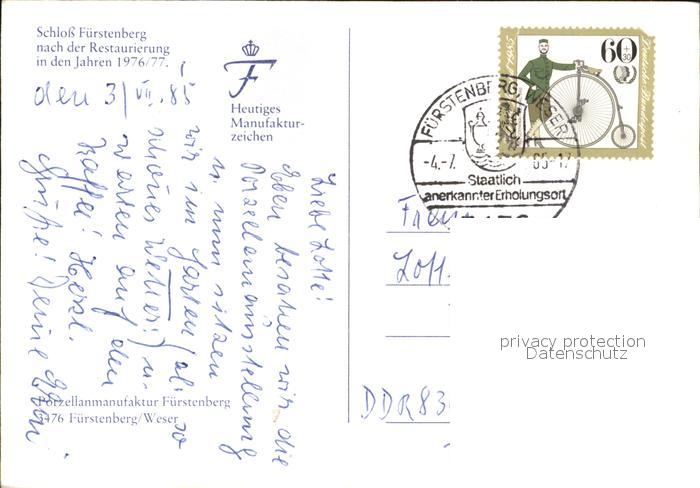 Schloß Fürstenberg
nach der Restaurierung
in den Jahren 1976/77.
F
Heutiges
Manufaktur-
zeichen
den 3/VII. 85
Liebe Lotte!
Eben besahen wir die
Porzellanausstellung
u. nun sitzen
wir im Garten (also
schönes Wetter!) u.
warten auf den
Kaffee! Herzl.
Grüße! Deine
Porzellanmanufaktur Fürstenberg
3476 Fürstenberg/Weser
60+30
Deutsche Bundespost
1985
FÜRSTENBERG, WESER
-4.-7. 85-17
Staatlich
anerkannter Erholungsort
Frau
Lott
DDR 83
privacy protection
Datenschutz